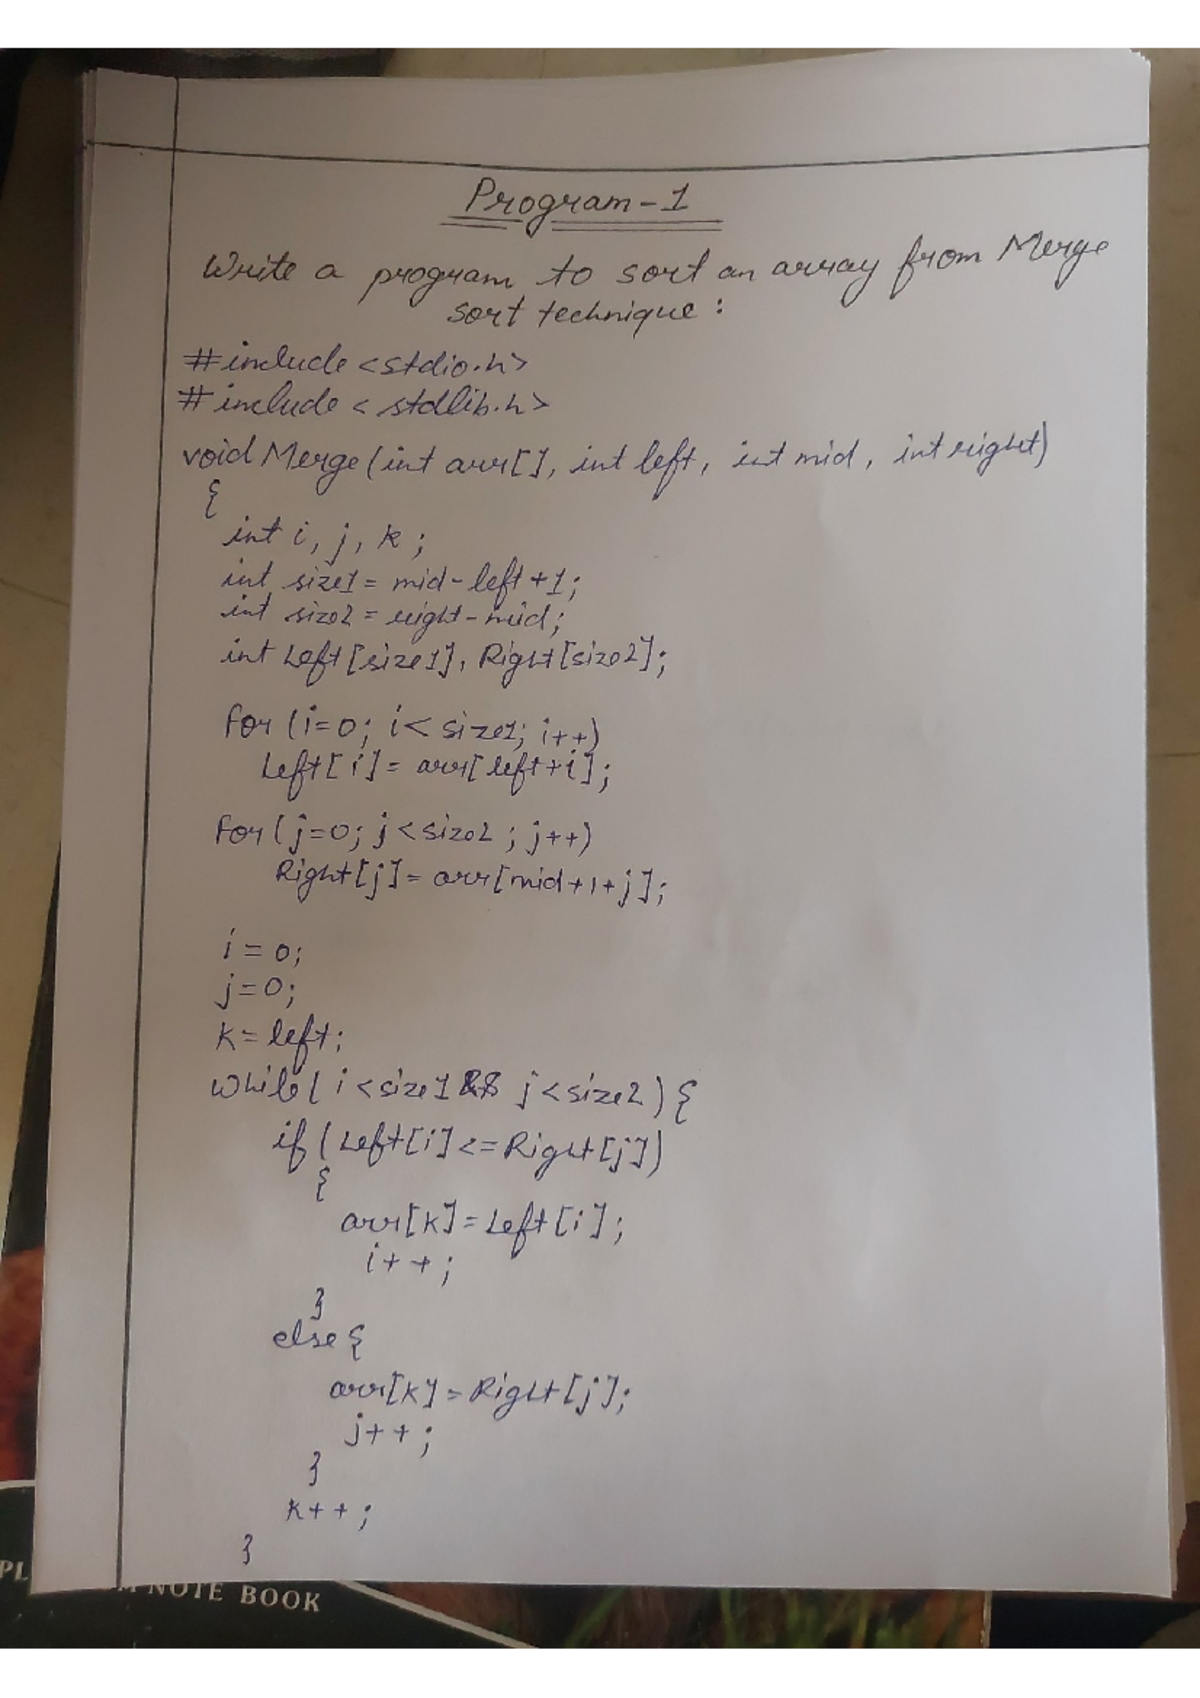 Program-1
Write a program to sort an array from Merge
sort technique :
#include <stdio.h>
#include < stdlib.h>
void Merge (int arr[], int left, int mid, int right)
{
int i, j, k ;
int size1 = mid - left + 1;
int size2 = right - mid;
int Left [size1], Right [size2];
for (i=0; i< size1; i++)
Left[i] = arr[left+i];
for (j=0; j<size2 ; j++)
Right[j] = arr[mid+1+j];
i = 0;
j=0;
k= left;
while( i <size1 && j <size2) {
if ( Left[i] <= Right[j])
{
arr[k] = Left[i];
i++;
}
else {
arr[k] = Right[j];
j++;
}
k++;
}
NOTE BOOK